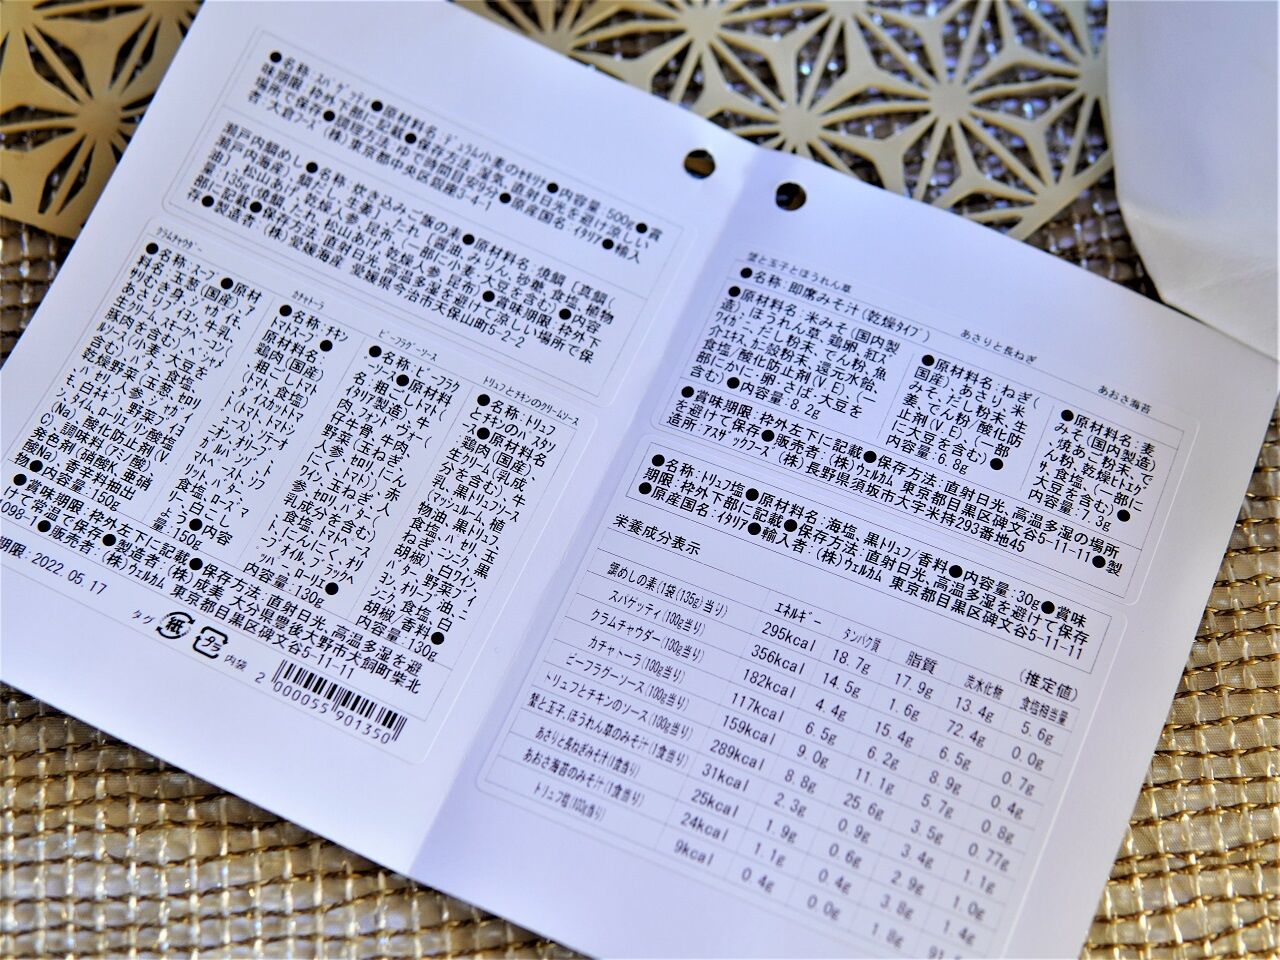 ●名称:スパゲッティ●原材料名:デュラム小麦のセモリナ●内容量:500g●賞
味期限:枠外下部に記載●保存方法:湿気、直射日光を避け涼しい
場所で保存●調理方法:ゆで時間目安9分●原産国名:イタリア●輸入
者:大倉フーズ(株)東京都中央区銀座3-4-1
瀬戸内鯛めし●名称:炊き込みご飯の素●原材料名:焼鯛[真鯛(
瀬戸内海産)、鯛だし、生姜]、たれ[醤油、みりん、砂糖、食塩、植物
油]、松山あげ、乾燥人参、昆布、(一部に小麦・大豆を含む)●内容
量:135g(焼鯛、たれ、松山あげ、乾燥人参、昆布)●賞味期限:枠外下
部に記載●保存方法:直射日光、高温多湿を避けて涼しい場所で保
存●製造者:(株)愛媛海産 愛媛県今治市天保山町5-2-2
クラムチャウダー
●名称:スープ●原材
料名:玉葱(国産)、ア
サリむき身、ジャガイモ、
あさりブイヨン、牛乳、
生クリーム、スモークベーコン(
豚肉を含む)、ベシャメ
ルソース(小麦・大豆を
含む)、バター、食塩、
乾燥野菜(玉葱、パセ
リ、人参、ジャガイ
モ、白ネギ)、野菜ブイヨ
ン、タイム、ローリエ/リン酸塩
(Na)、酸化防止剤(V
C)、調味料(アミノ酸)、
発色剤(硝酸K、亜硝
酸Na)、香辛料抽出
物●内容量:150g
カチャトーラ
●名称:チキン
トマトソース●
原材料名:
鶏肉(国産)
、粗ごしトマト
(トマト、食塩)
、ダイスカットトマ
ト(トマト、トマト
ジュース)、ソテーオ
ニオン、オリーブ、ト
マトペースト、ワイ
ン、バター、マー
ガリン、パプリカ、
食塩、ローズマ
リー、白こしょ
う●内容
量:150g
ビーフラグーソース
●名称:ビーフラグ
ーソース●原材料
名:粗ごしトマト(
イタリア製造)、牛
肉、フォン・ド・ヴォー(
牛骨、牛肉、
野菜(玉ねぎ、人
参、セロリ、にん
にく、トマト)、赤
ワイン、玉ねぎ、人
参、セロリ、バター(
乳成分を含む)、
食塩、トマトペース
ト、にんにく、オリー
ブオイル、ブラックペ
ッパー、ローリエ●
内容量:130g
トリュフとチキンのクリームソース
●名称:トリュフ
とチキンのパスタソ
ース●原材料名:
鶏肉(国産)、
生クリーム(乳成
分を含む)、牛
乳、黒トリュフソース
(マッシュルーム、植
物油、黒トリュフ、
食塩、パセリ、玉
ねぎ、ニンニク、黒
胡椒)、白ワイン、
バター、野菜ブイ
ヨン、オリーブ油、ニ
ンニク、食塩、白
胡椒/香料●
内容量:130g
●賞味期限:枠外左下に記載●保存方法:直射日光、高温多湿を避
けて常温で保存●製造者:(株)成美 大分県豊後大野市犬飼町柴北
1098-1●販売者:(株)ウェルカム 東京都目黒区碑文谷5-11-11
期限:2022.05.17
タグ 紙 プラ 内袋
2 000055 901350
蟹と玉子とほうれん草
●名称:即席みそ汁(乾燥タイプ)
●原材料名:米みそ(国内製
造)、ほうれん草、鶏卵、紅ズ
ワイカニ、だし粉末、でん粉、魚
介エキス、カニ殻粉末、還元水飴、
食塩/酸化防止剤(V.E)、(一
部にかに・卵・さば・大豆を
含む)●内容量:8.2g
あさりと長ねぎ
●原材料名:ねぎ(
国産)、あさり、米
みそ、だし粉末、生
姜、でん粉/酸化防
止剤(V.E)、(一部
に大豆を含む)●
内容量:6.6g
あおさ海苔
●原材料名:麦
みそ(国内製造)
、焼あご粉末、で
ん粉、乾燥ヒトエグ
サ、食塩、(一部に
大豆を含む)●
内容量:7.3g
●賞味期限:枠外左下に記載●保存方法:直射日光、高温多湿の場所
を避けて保存●販売者:(株)ウェルカム 東京都目黒区碑文谷5-11-11●製
造所:アスザックフーズ(株)長野県須坂市大字米持293番地45
●名称:トリュフ塩●原材料名:海塩、黒トリュフ/香料●内容量:30g●賞味
期限:枠外下部に記載●保存方法:直射日光、高温多湿を避けて保存
●原産国名:イタリア●輸入者:(株)ウェルカム 東京都目黒区碑文谷5-11-11
栄養成分表示 (推定値)
エネルギー タンパク質 脂質 炭水化物 食塩相当量
鯛めしの素(1袋(135g)当り) 295kcal 18.7g 17.9g 13.4g 5.6g
スパゲッティ(100g当り) 356kcal 14.5g 1.6g 72.4g 0.0g
クラムチャウダー(100g当り) 182kcal 4.4g 15.4g 6.5g 0.7g
カチャトーラ(100g当り) 117kcal 6.5g 6.2g 8.9g 0.4g
ビーフラグーソース(100g当り) 159kcal 9.0g 11.1g 5.7g 0.8g
トリュフとチキンのソース(100g当り) 289kcal 8.8g 25.6g 3.5g 0.77g
蟹と玉子、ほうれん草のみそ汁(1食当り) 31kcal 2.3g 0.9g 3.4g 1.1g
あさりと長ねぎみそ汁(1食当り) 25kcal 1.9g 0.6g 2.9g 1.0g
あおさ海苔のみそ汁(1食当り) 24kcal 1.1g 0.4g 3.8g 1.4g
トリュフ塩(100g当り) 9kcal 0.4g 0.0g 1.8g